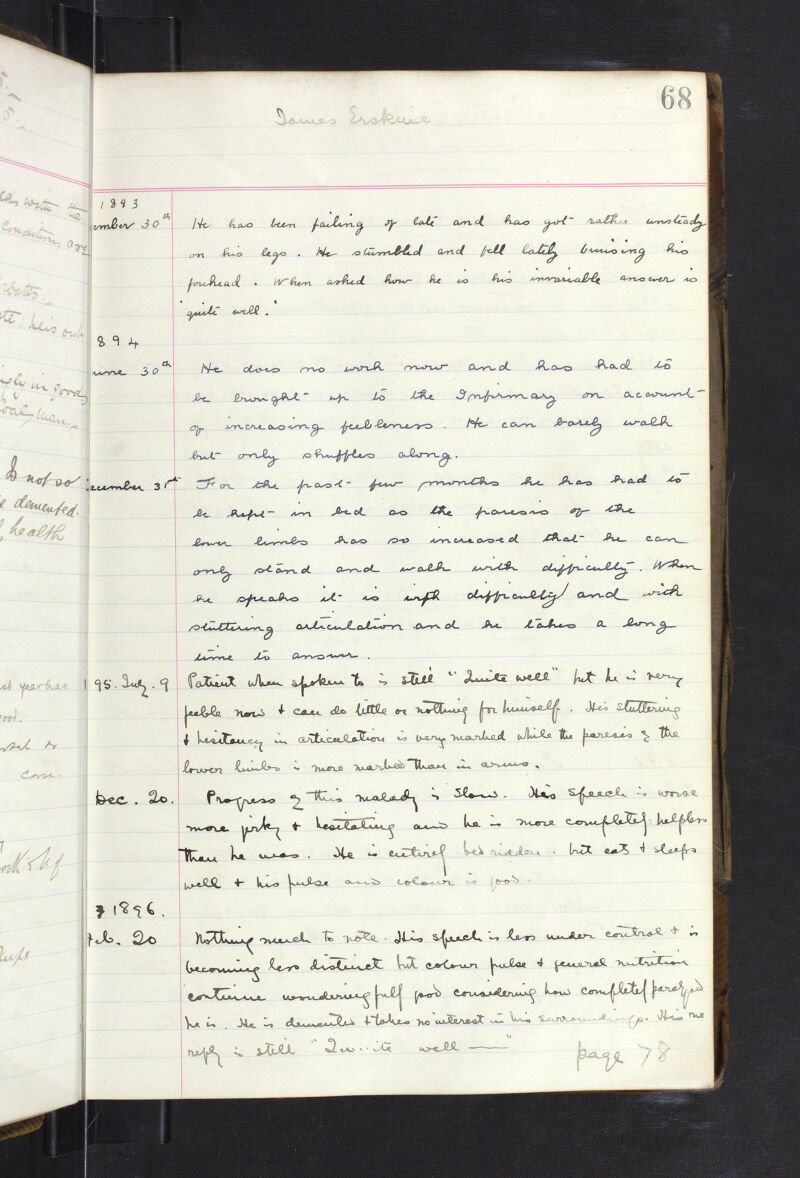 68
James Erskine
1893
ember 30th He has been failing of late and has got rather unsteady
on his legs. He stumbled and fell lately bruising his
forehead. When asked how he is his invariable answer is
"quite well."
894
une 30th He does no work now and has had to
be brought up to the Infirmary on account
of increasing feebleness. He can barely walk
but only shuffles along.
cember 31st For the past few months he has had to
be kept in bed as the paresis of the
lower limbs has so increased that he can
only stand and walk with difficulty. When
he speaks it is with difficulty and with
stuttering articulation and he takes a long
time to answer.
95. July. 9 Patient when spoken to is still "Quite well" but he is very
feeble now & can do little or nothing for himself. His stuttering
& hesitancy in articulation is very marked while the paresis of the
lower limbs is more marked than in arms.
Dec. 20. Progress of this malady is slow. His speech is worse
more jerky & hesitating and he is more completely helpless
than he was. He is entirely bedridden. but eats & sleeps
well & his pulse and colour is good.
1896.
Feb. 20 Nothing much to note. His speech is less under control & is
becoming less distinct but colour pulse & general nutrition
continue wonderfully good considering how completely paralysed
he is. He is demented & takes no interest in his surroundings. His one
reply is still "Qu..ite well —"
page 78
eas with the
conditions are
he is out
in good
man.
Is not so
demented.
health
year has
ood.